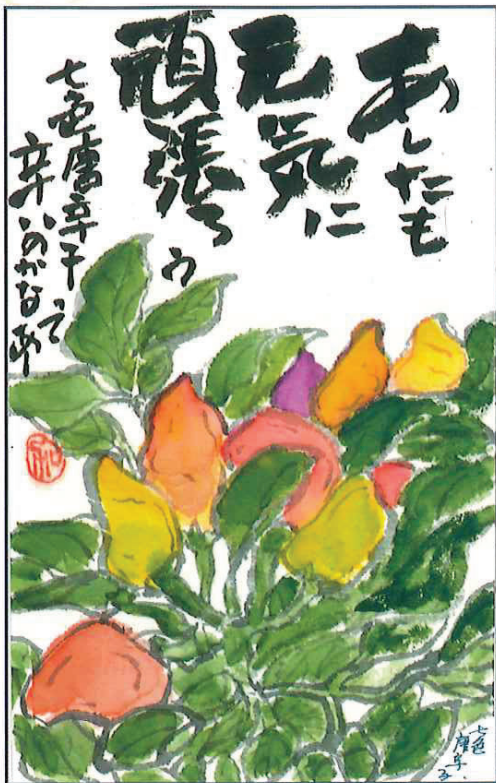 あしたも
元気に
頑張ろう
七色唐辛子って
辛いのかなあ
七色
唐辛子